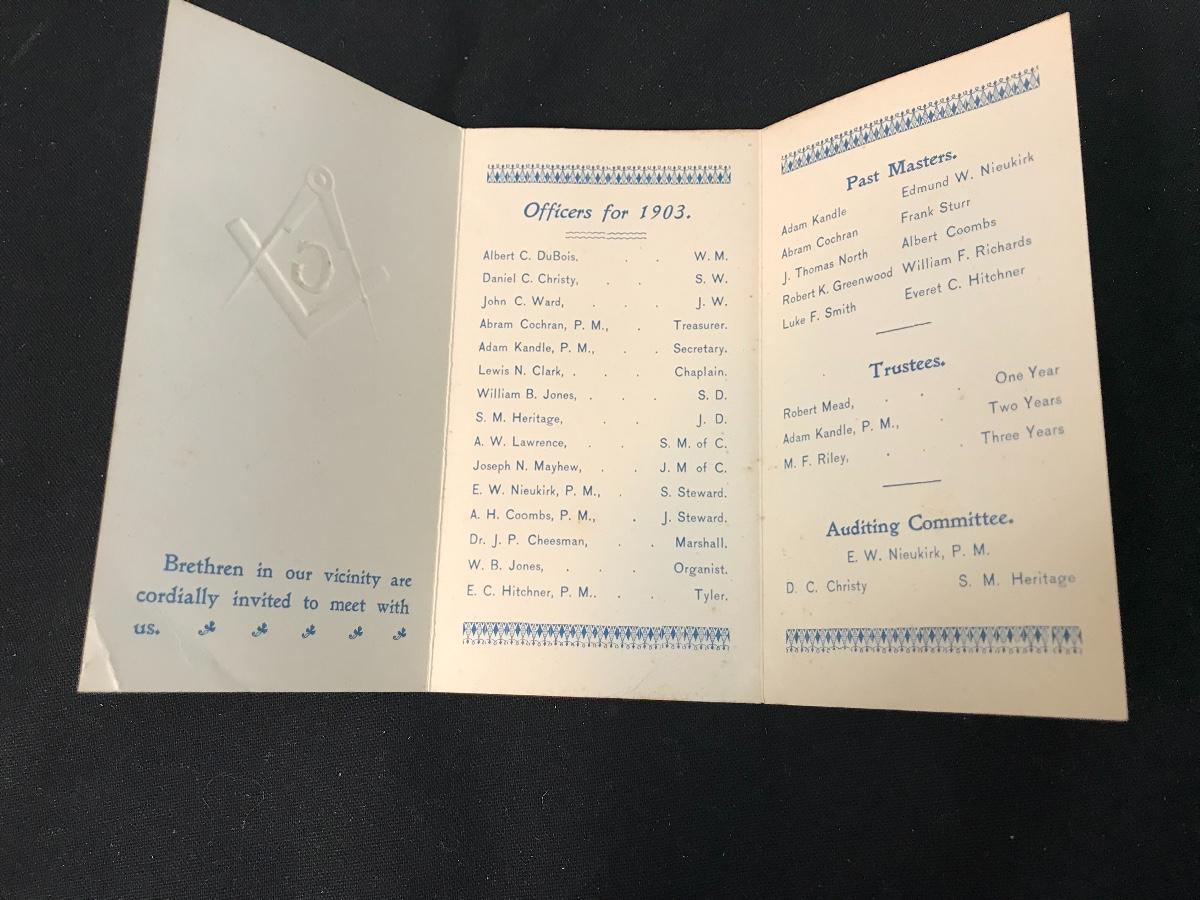 Brethren in our vicinity are
cordially invited to meet with
us.
Officers for 1903.
Albert C. DuBois. . . W. M.
Daniel C. Christy, . . S. W.
John C. Ward, . . . J. W.
Abram Cochran, P. M., . Treasurer.
Adam Kandle, P. M., . . Secretary.
Lewis N. Clark, . . . Chaplain.
William B. Jones, . . . S. D.
S. M. Heritage, . . J. D.
A. W. Lawrence, . . S. M. of C.
Joseph N. Mayhew, . . J. M of C.
E. W. Nieukirk, P. M., . S. Steward.
A. H. Coombs, P. M., . J. Steward.
Dr. J. P. Cheesman, . . Marshall.
W. B. Jones, . . . Organist.
E. C. Hitchner, P. M.. . . Tyler.
Past Masters.
Adam Kandle Edmund W. Nieukirk
Abram Cochran Frank Sturr
J. Thomas North Albert Coombs
Robert K. Greenwood William F. Richards
Luke F. Smith Everet C. Hitchner
Trustees.
Robert Mead, . . . One Year
Adam Kandle, P. M., . Two Years
M. F. Riley, . . . Three Years
Auditing Committee.
E. W. Nieukirk, P. M.
D. C. Christy S. M. Heritage